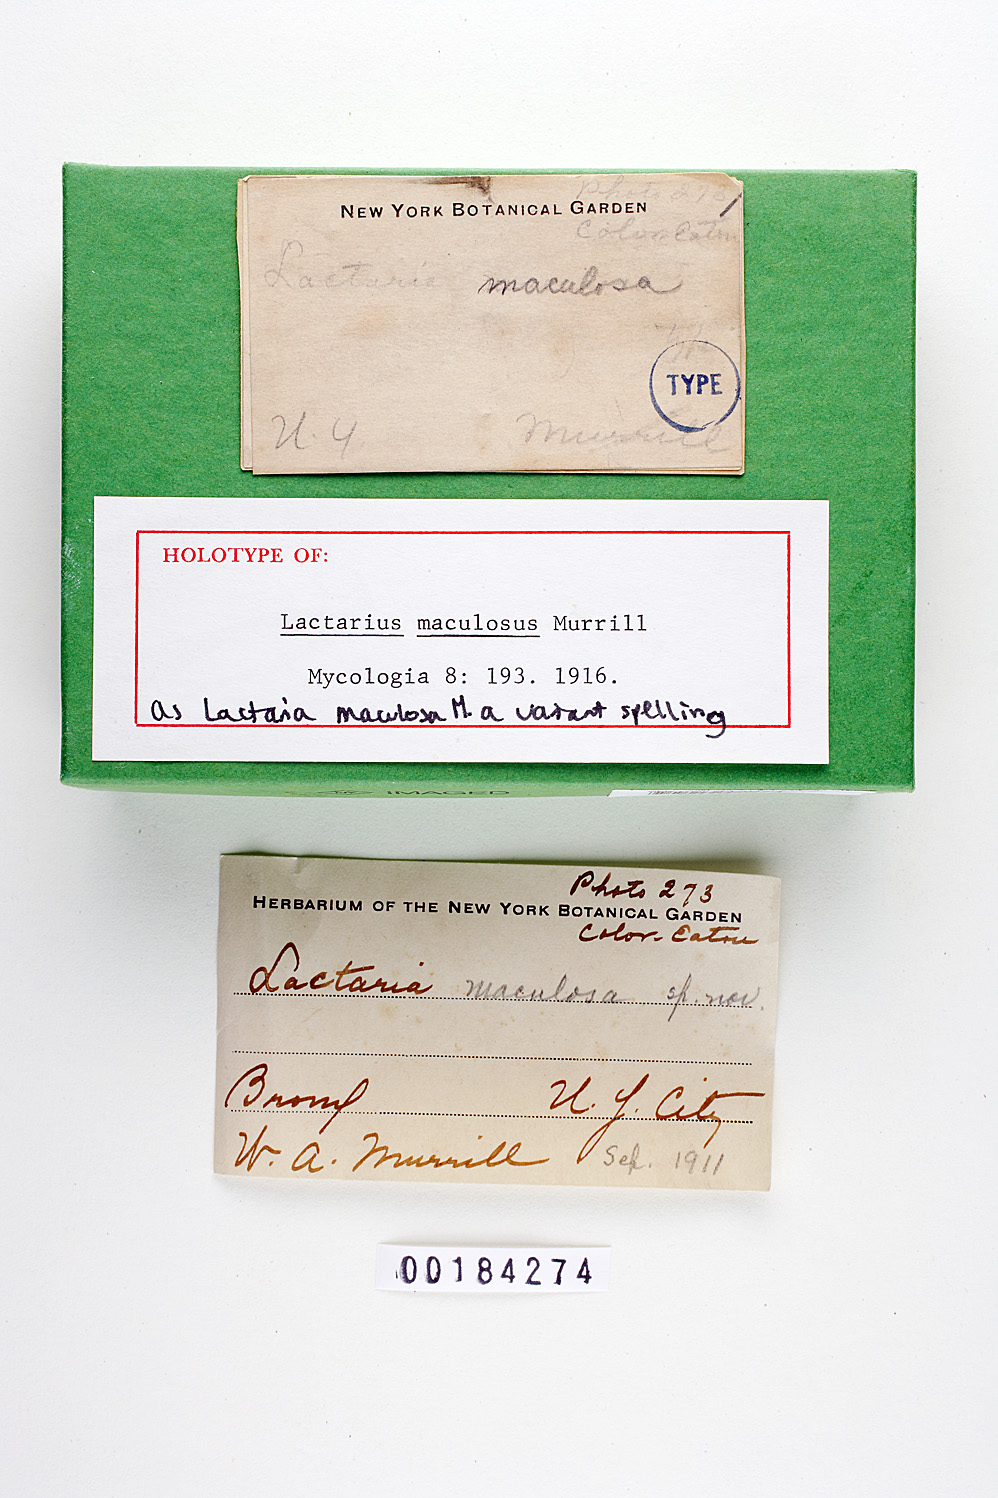 Photo 273
NEW YORK BOTANICAL GARDEN
Color Eaton
Lactaria maculosa
TYPE
N. Y. Murrill
HOLOTYPE OF:
Lactarius maculosus Murrill
Mycologia 8: 193. 1916.
as Lactaria maculosa M. a variant spelling
IMAGED
Photo 273
HERBARIUM OF THE NEW YORK BOTANICAL GARDEN
Color-Eaton
Lactaria maculosa sp. nov.
Bronx N. Y. City
W. A. Murrill Sep. 1911
00184274